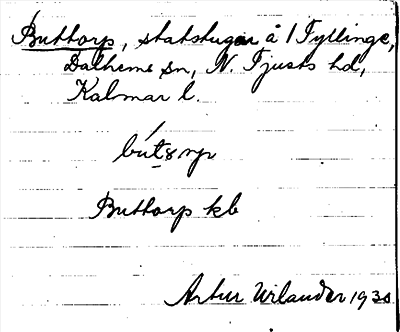 Buttorp, statstuga å 1 Fyllinge,
Dalhems sn, N. Tjusts hd,
Kalmar l.
Buttorp kb
Artur Wilander 1930